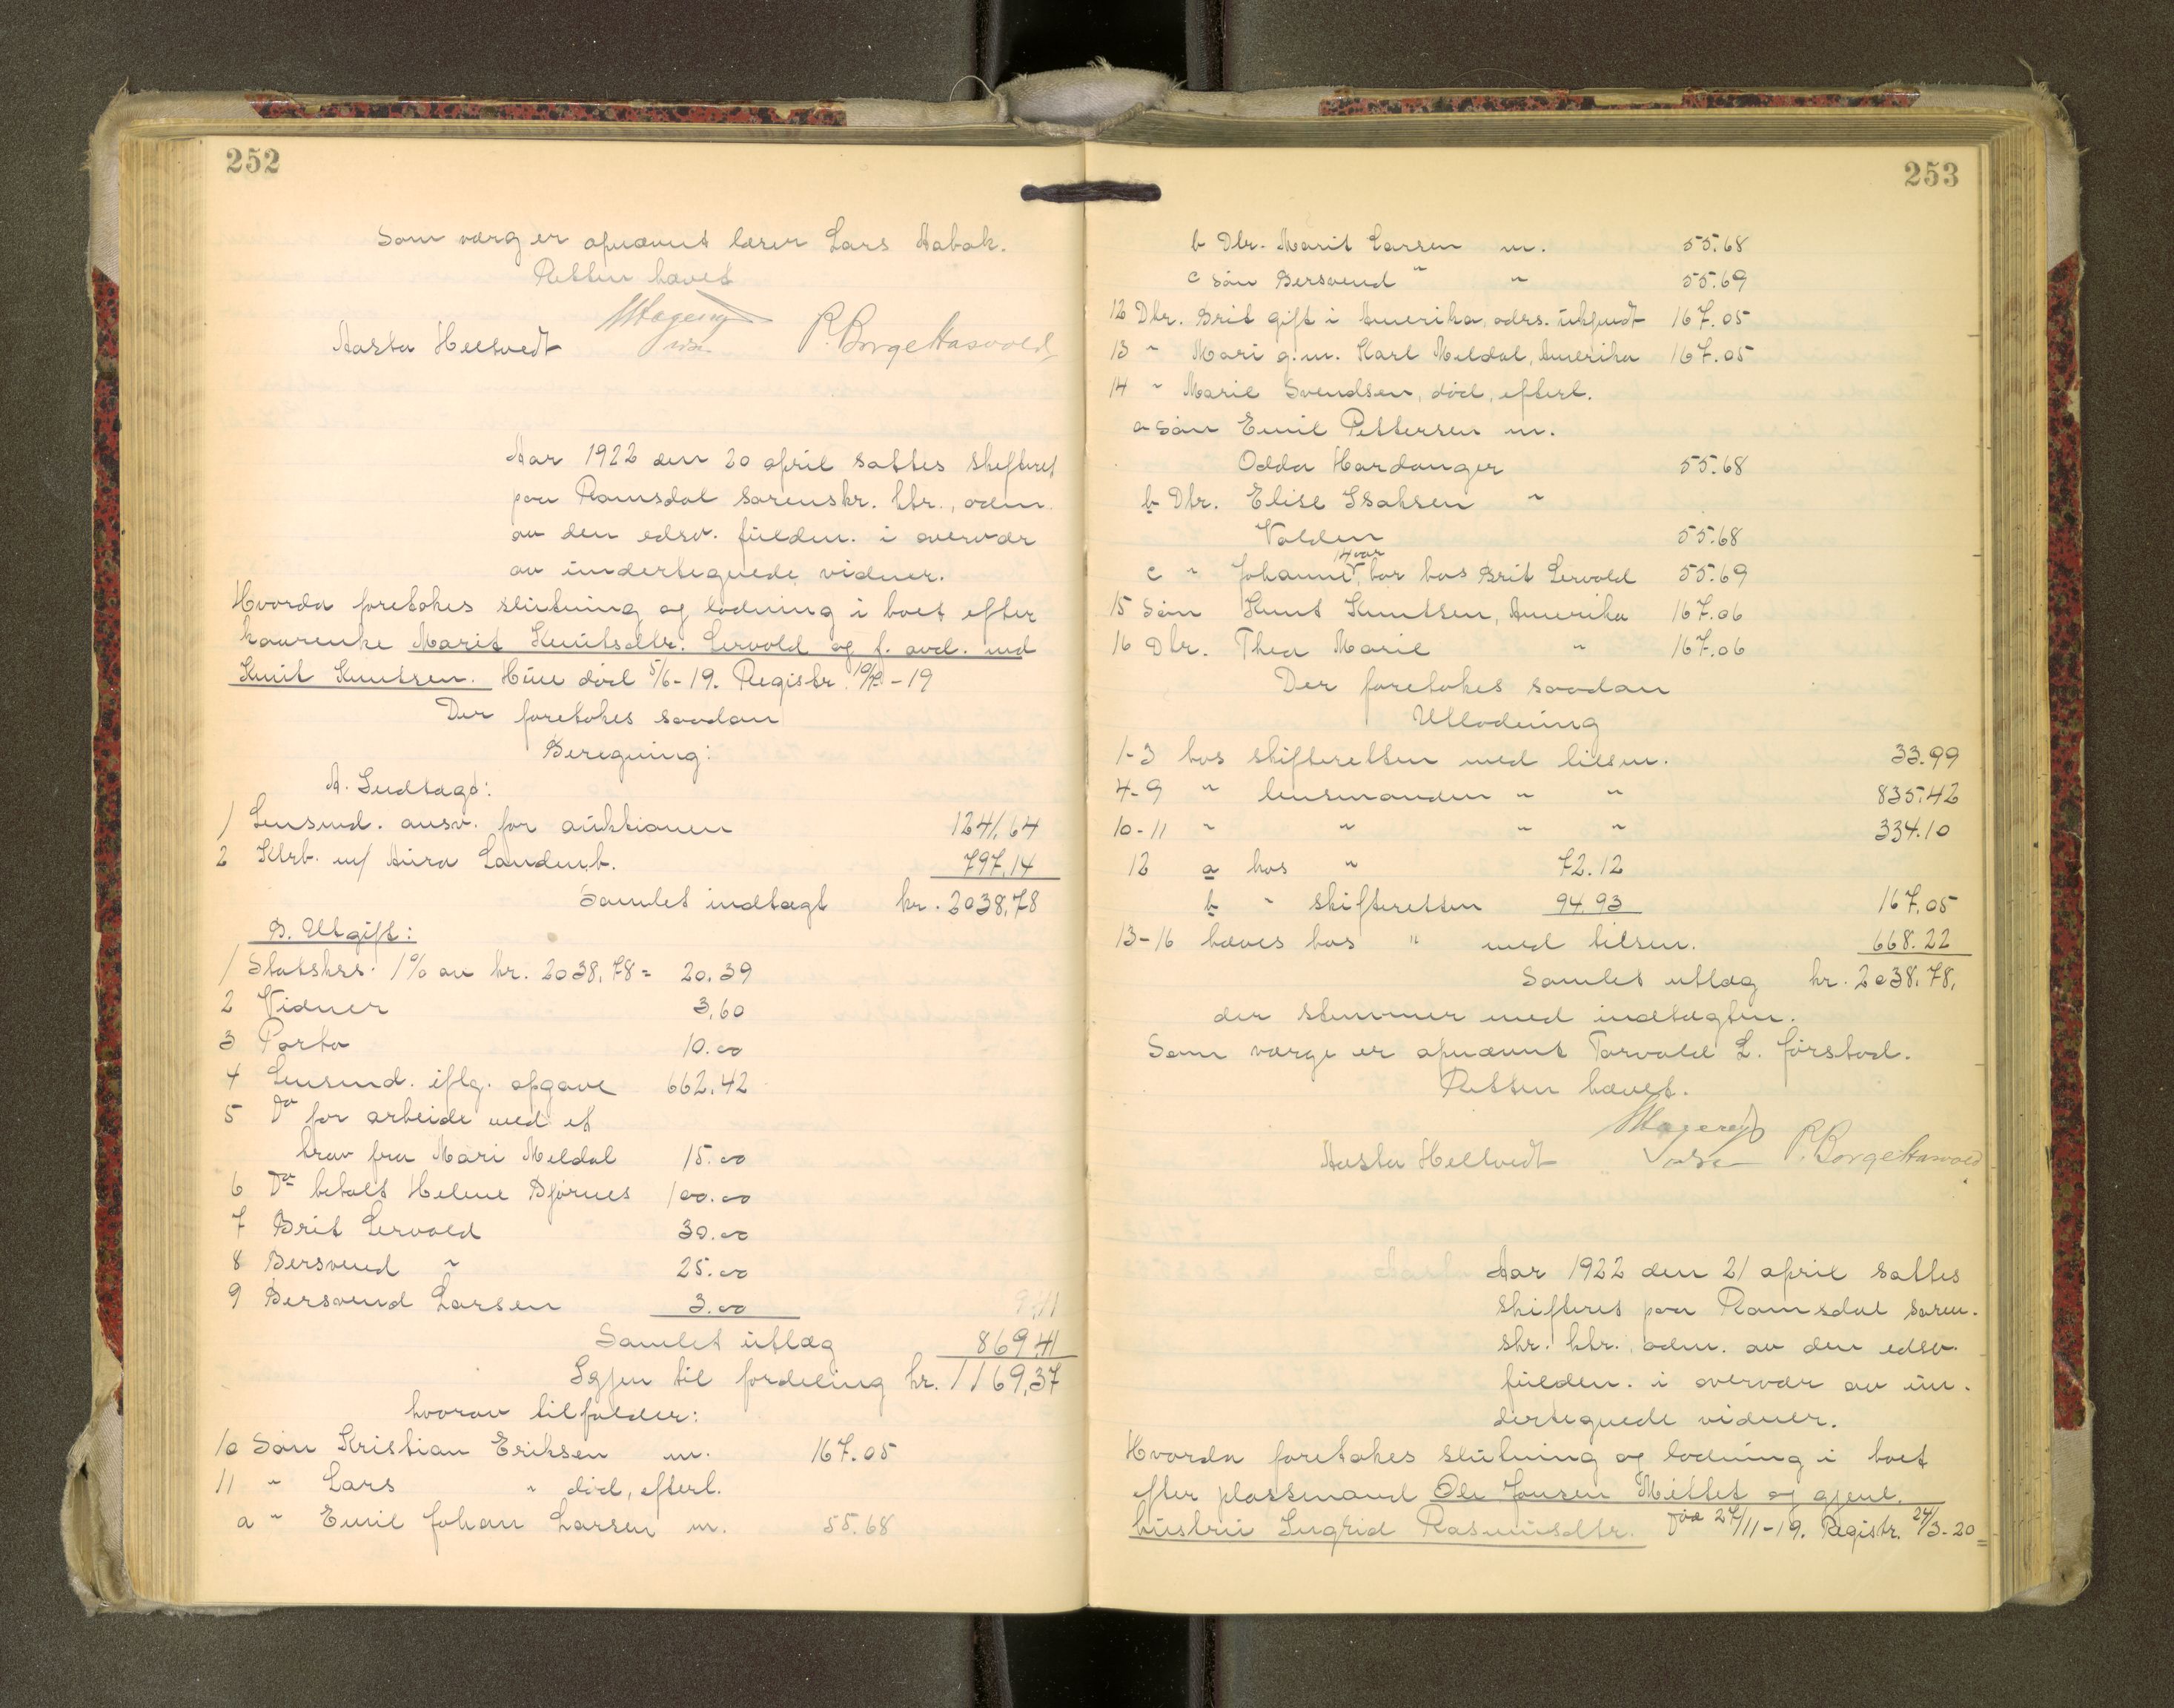 252
Som værg er opnævnt læser Lars Aabak.
Retten hævet
Aasta Heltvedt
P. Borge Hasvold
Aar 1922 den 20 april sattes skifteret
paa Romsdal sorenskr. ktr., adm.
av den edsv. fuldm. i overvær
av undertegnede vidner.
Hvorda foretokes slutning og lodning i boet efter
kaarenke Marit Knutsdtr. Lervold og f. avd. md
Knut Knutsen. Hun død 5/6-19. Registr. 10/7-19
Der foretokes saadan
Beregning:
A. Indtægt:
1 Lensmd. ansv. for auktionen 1241,64
2 Ktrb. m/ Aura Landmb. 797,14
Samlet indtægt kr. 2038,78
B. Utgift:
1 Statskrs. 1% av kr. 2038,78 = 20.39
2 Vidner 3,60
3 Porto 10.00
4 Lensmd. iflg. opgave 662,42
5 Do for arbeide med et
krav fra Mari Meldal 15.00
6 Do betalt Helene Bjørnes 100.00
7 Brit Lervold 30.00
8 Bersvend " 25.00
9 Bersvend Larsen 3.00
Samlet utlæg 869,41
Igjen til fordeling kr. 1169,37
hvorav tilfalder:
10 Søn Kristian Eriksen m. 167.05
11 " Lars " død, efterl.
a " Emil Johan Larsen m. 55.68
253
b Dtr. Marit Larsen m. 55.68
c Søn Bersvend " " 55.69
12 Dtr. Brit gift i Amerika, adrs. ukjendt 167.05
13 " Mari g.m. Karl Meldal, Amerika 167.05
14 " Marie Svendsen, død, efterl.
a Søn Emil Pettersen m.
Odda Hardanger 55.68
b Dtr. Elise Isaksen "
Valden 55.68
14 aar
c " Johanne, bor hos Brit Lervold 55.69
15 Søn Knut Knutsen, Amerika 167.06
16 Dtr. Thea Marie " 167.06
Der foretokes saadan
Utlodning
1-3 hos skifteretten med tilsm. 33.99
4-9 " lensmanden " " 835.42
10-11 " " " " 334.10
12 a hos " 72.12
b " skifteretten 94.93 167,05
13-16 hæves hos " med tilsm. 668.22
Samlet utlæg kr. 2038,78,
der stemmer med indtægten.
Som værge er opnævnt Torvald L. Jørstad.
Retten hævet.
Aasta Heltvedt
P. Borge Hasvold
Aar 1922 den 21 april sattes
skifteret paa Romsdal soren-
skr. ktr. adm. av den edsv.
fuldm. i overvær av un-
dertegnede vidner.
Hvorda foretokes slutning og lodning i boet
efter plassmand Ole Jonsen Mittet og gjenl.
hustru Ingrid Rasmusdtr. Død 27/11-19. Registr. 24/3-20